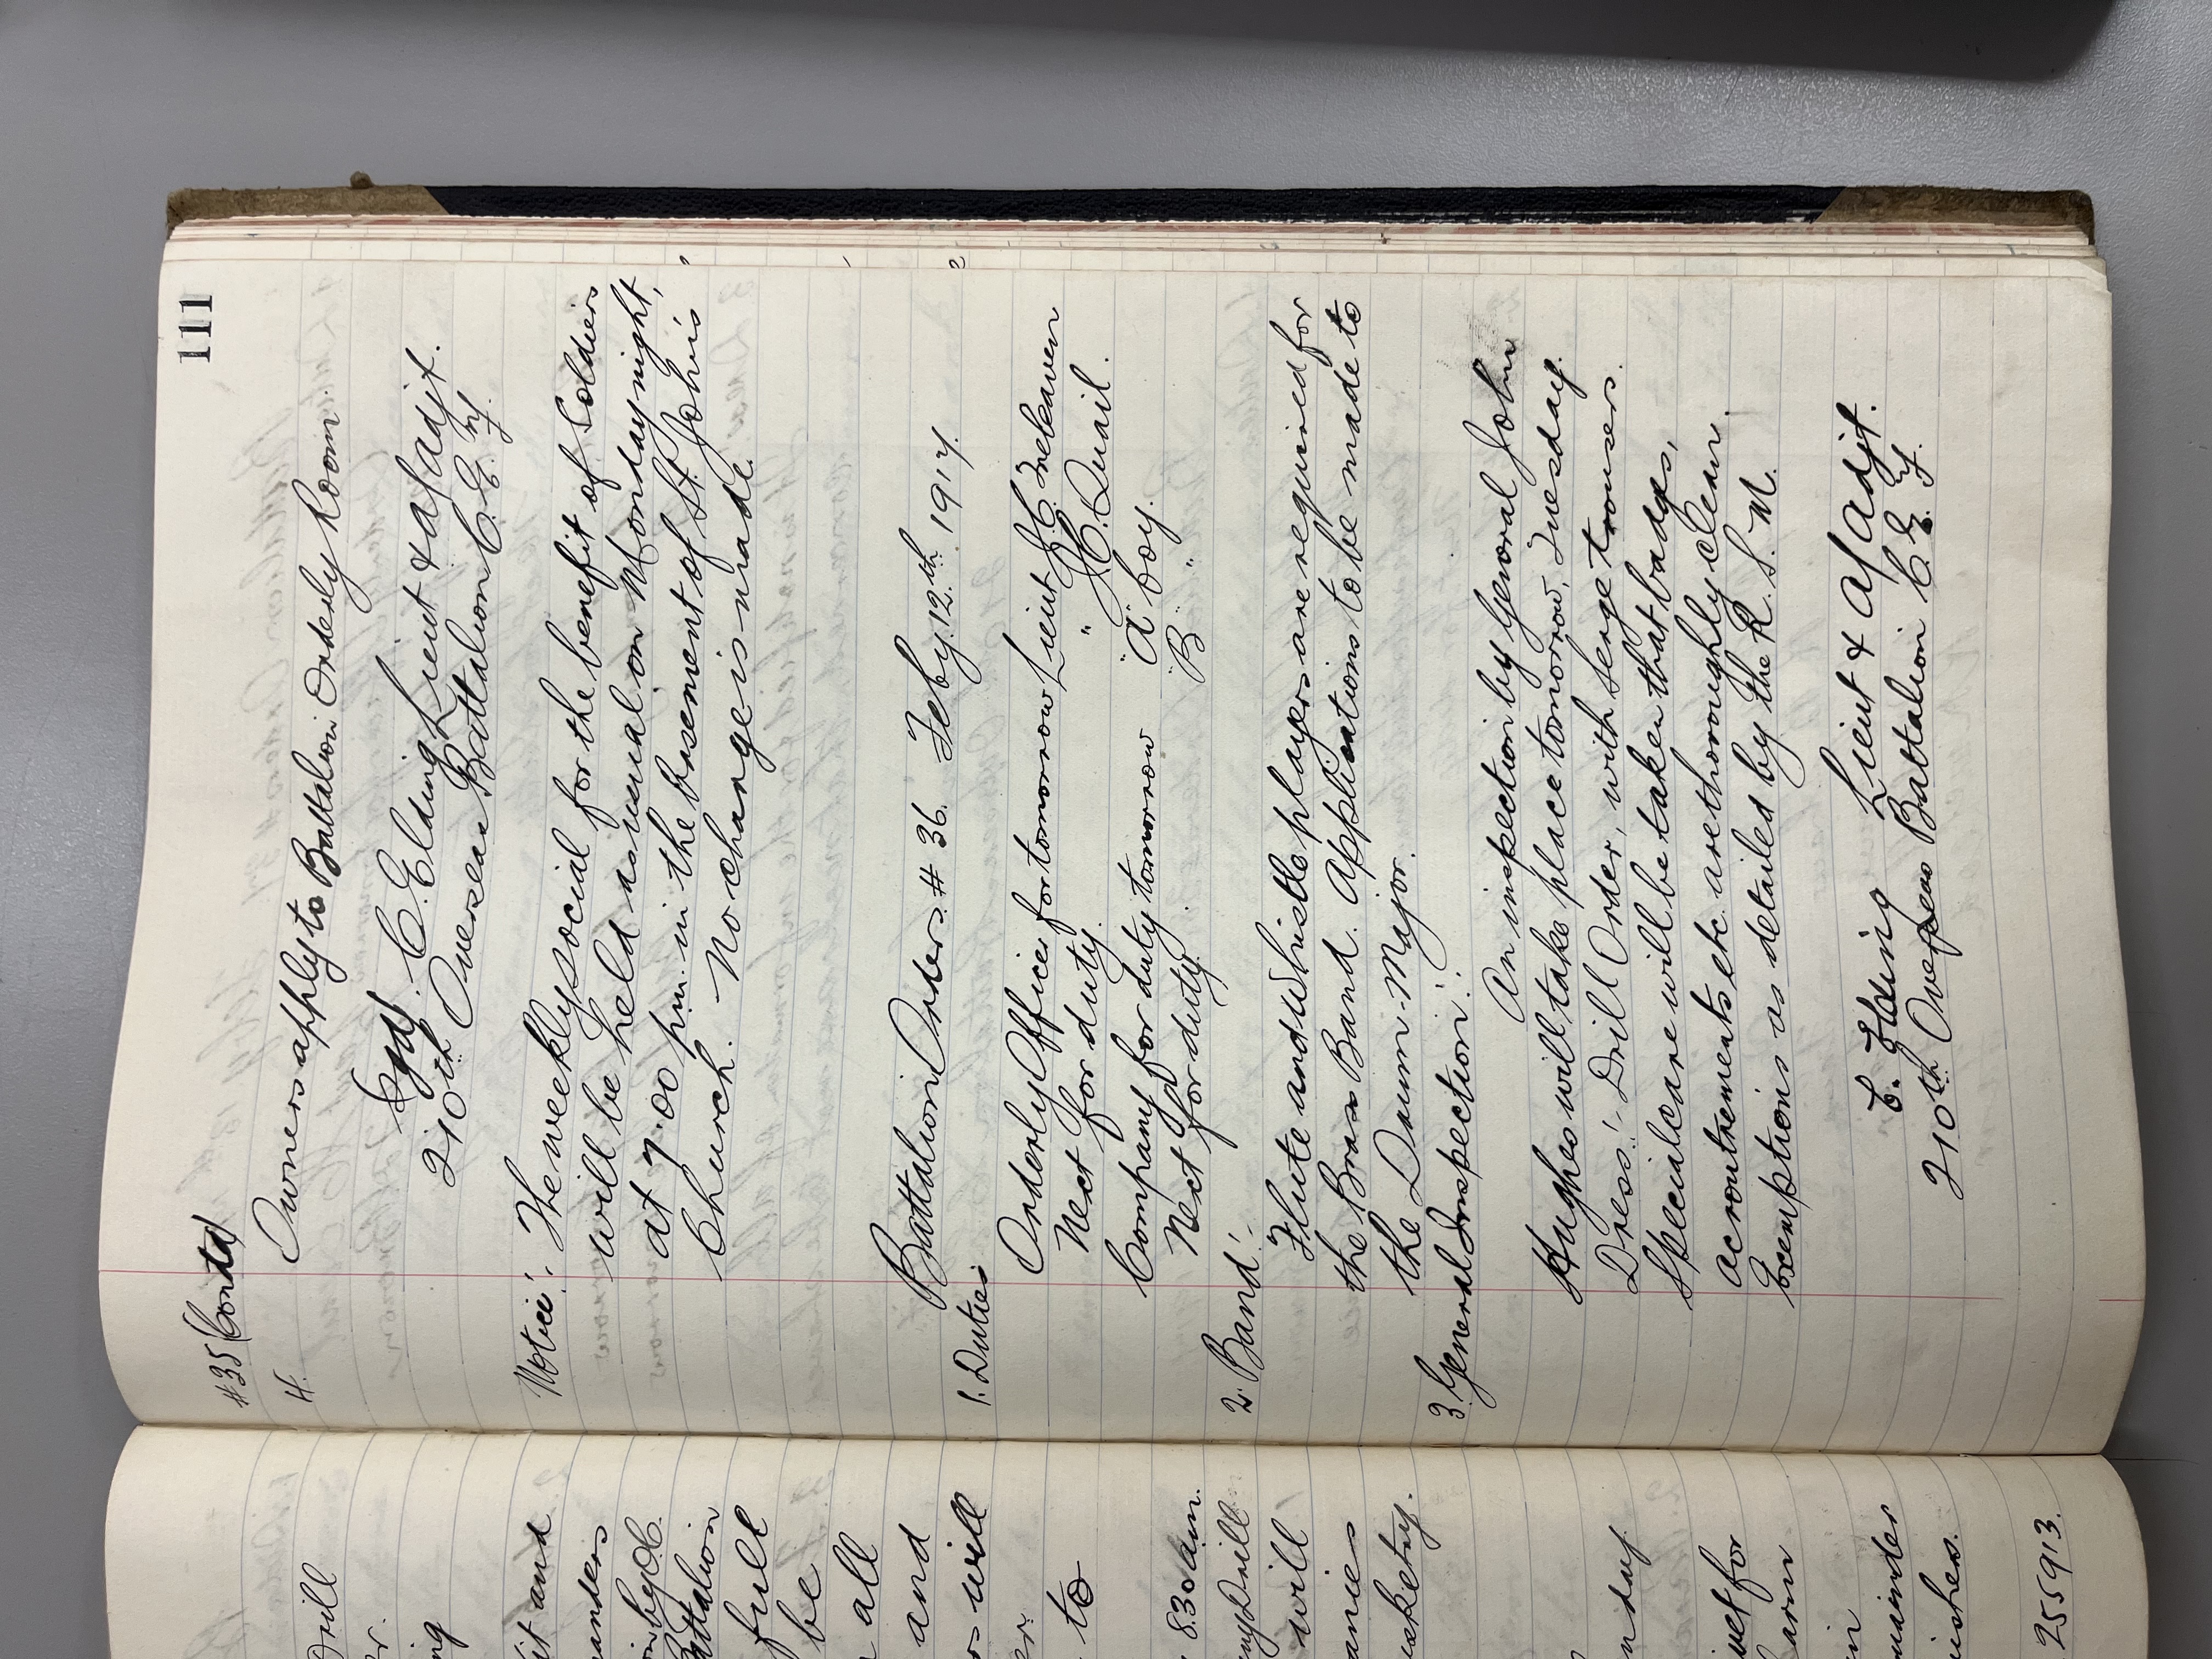 111
#35 Contd
4.
Owners apply to Battalion Orderly Room.
Sgd. C. Elding Lieut & a/ Adjt.
210th Overseas Battalion C.E.F.
Notice:- The weekly social for the benefit of Soldiers
will be held as usual on Monday night,
at 7.00 p.m. in the basement of St. John's
Church. No change is made.
Battalion Orders. # 36. Feby. 12th. 1917.
1. Duties
Orderly Officer for tomorrow Lieut J.C. Treleaven
Next for duty. " H.C. Quail.
Company for duty tomorrow "A" Coy.
Next for duty. B. "
2. Band:-
Flute and whistle players are required for
the Brass Band. Applications to be made to
the Drum-Major.
3. General Inspection:-
An inspection by General John
Hughes will take place tomorrow, Tuesday.
Dress:- Drill Order, with serge trousers.
Special care will be taken that badges,
accoutrements etc. are thoroughly clean.
Exemptions as detailed by the R.S.M.
C. Elding Lieut & a/ Adjt.
210th Overseas Battalion C.E.F.
Drill
r.
ng
it and
anders
Battalion
full
be
all
and
rs will
er.
to
8.30 a.m.
ny Drill
will
anies
sketry.
nday
ivet for
harn
in
mainder
uishes.
255913.